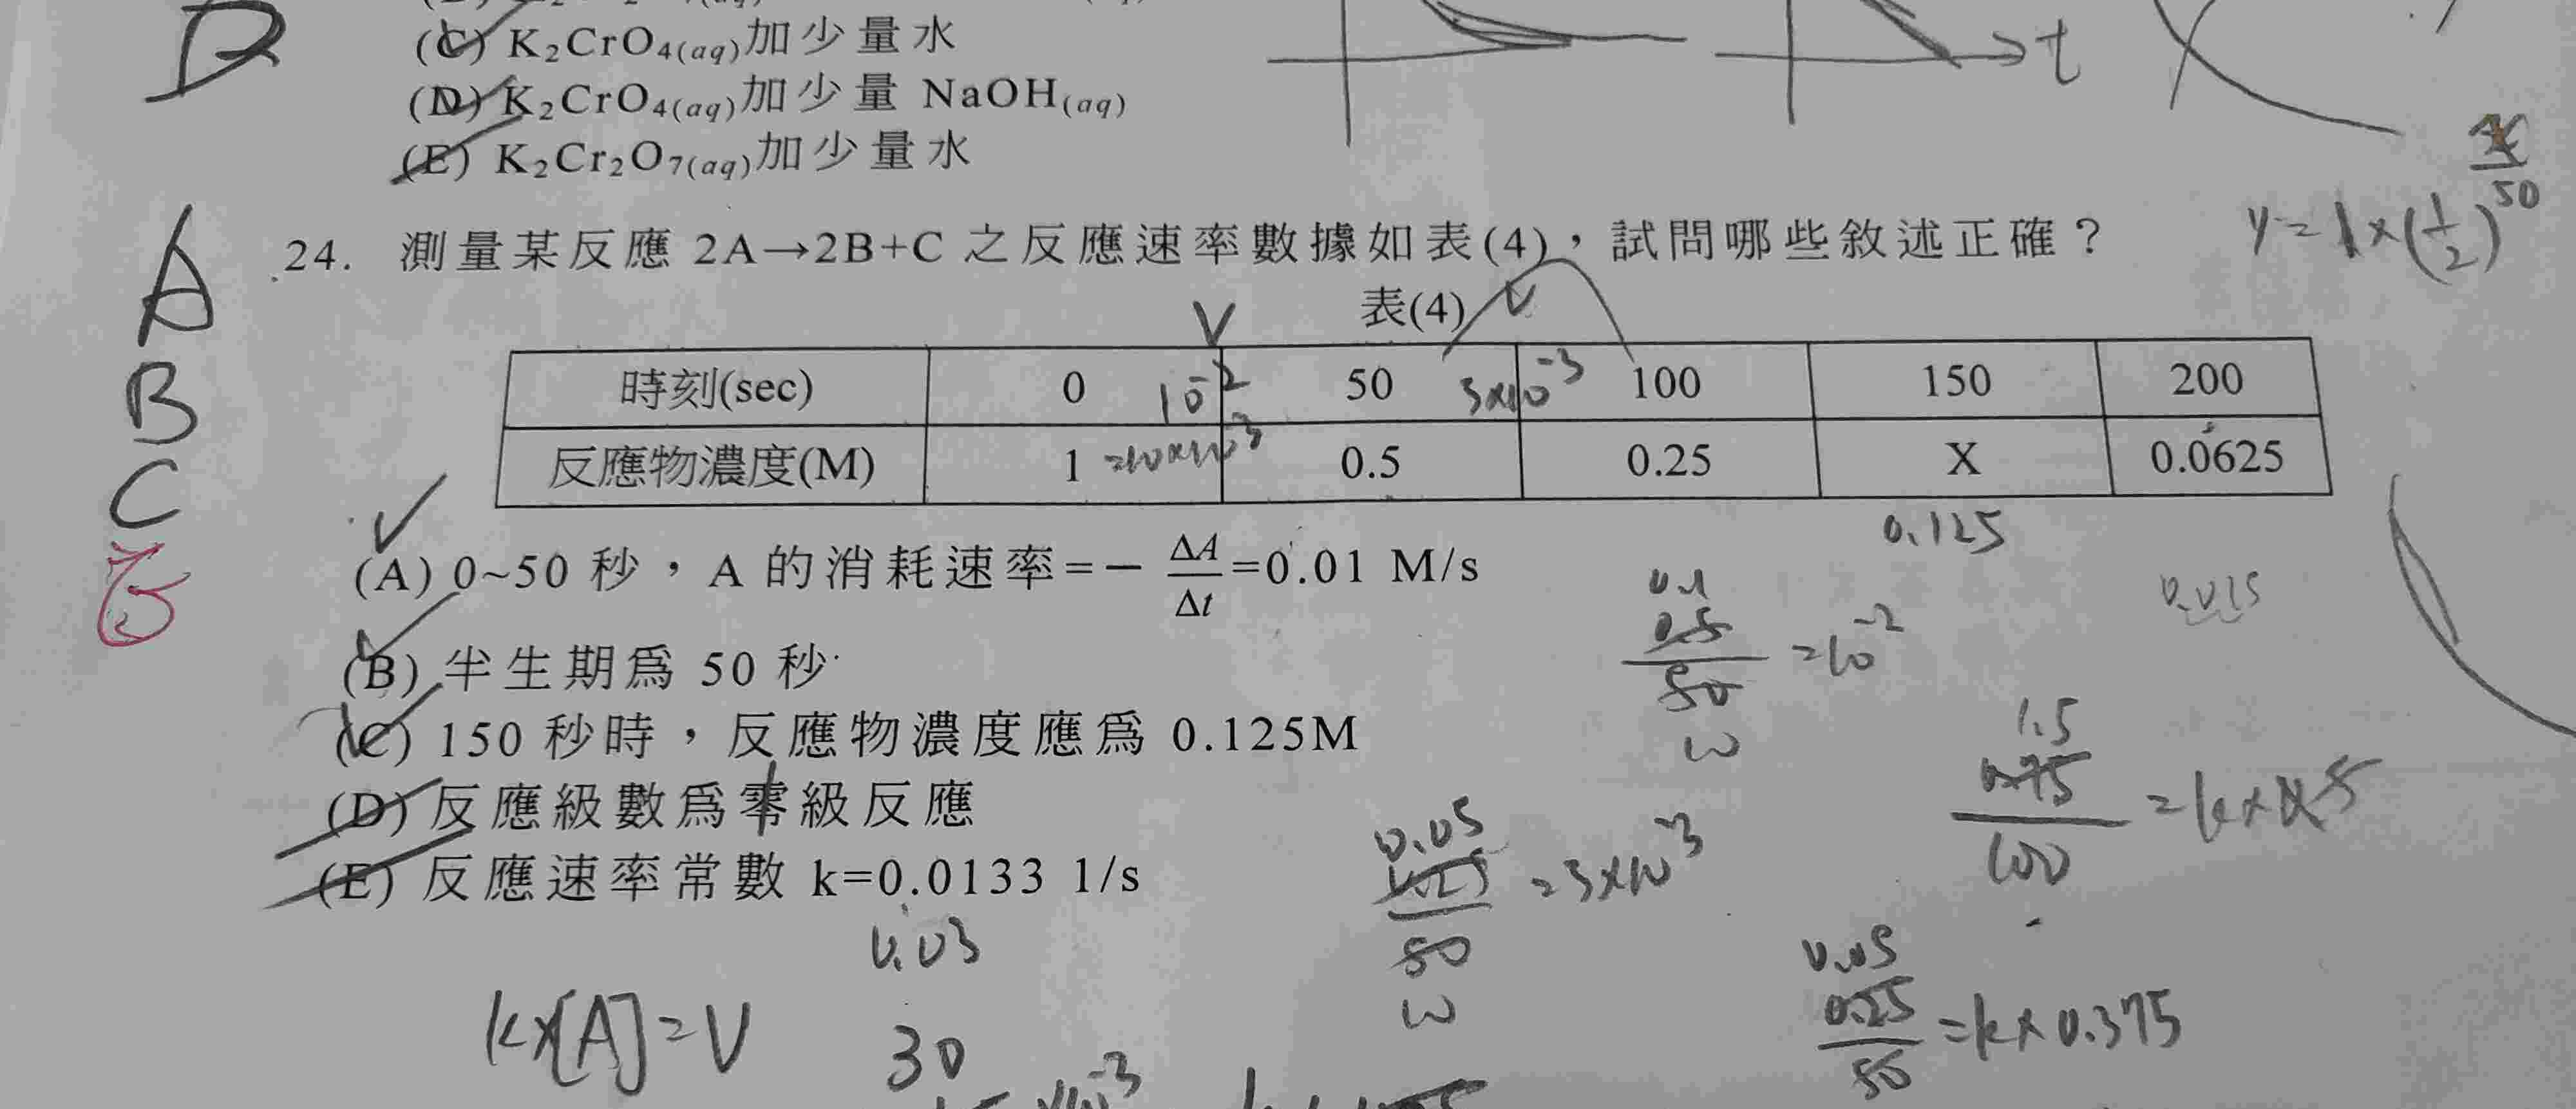 D
(C) K₂CrO₄(aq)加少量水
(D) K₂CrO₄(aq)加少量 NaOH(aq)
(E) K₂Cr₂O₇(aq)加少量水
t
50
y=1×(1/2)^50
A
B
C
24. 測量某反應 2A→2B+C 之反應速率數據如表(4)，試問哪些敘述正確？
表(4)
V
時刻(sec) 0 50 100 150 200
10⁻² 5×10⁻³
反應物濃度(M) 1 0.5 0.25 X 0.0625
=10×10⁻³
0.125
(A) 0~50 秒，A 的消耗速率=－ΔA/Δt=0.01 M/s
(B) 半生期爲 50 秒
(C) 150 秒時，反應物濃度應爲 0.125M
(D) 反應級數爲零級反應
(E) 反應速率常數 k=0.0133 1/s
0.1
0.5/50 =10⁻²
10
1.5
0.75/100 =k×0.5
0.05
0.25/50 =5×10⁻³
10
0.03
30
k×[A]=V
0.05
0.25/50 =k×0.375